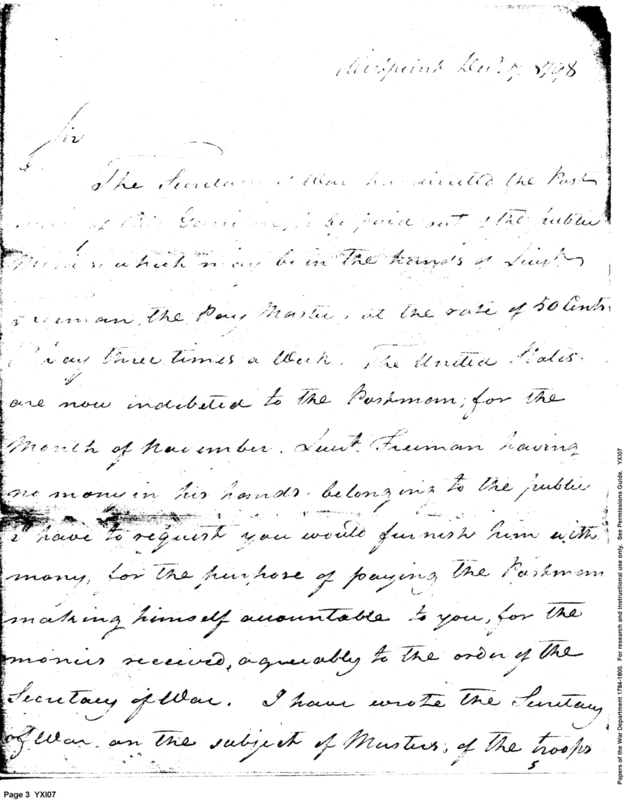 Westpoint Decr. 7, 1798
Sir
The Secretary of War has directed the Post
man of this Garrison, to be paid out of the public
Monies which may be in the hands of Lieut
Freeman, the Pay Master, at the rate of 50 Cents
P day three times a Week. The United States
are now indebeted to the Postmam, for the
Month of November. Lieut. Freeman having
no mony in his hands belonging to the public
I have to request you would furnish him with
mony, for the purpose of paying the Postman
making himself accountable to you, for the
monies received, agreeably to the order of the
Secretary of War. I have wrote the Secretary
of War on the subject of Musters, of the troops
Page 3 YXI07
Papers of the War Department 1784-1800. For research and instructional use only. See Permissions Guide. YXI07